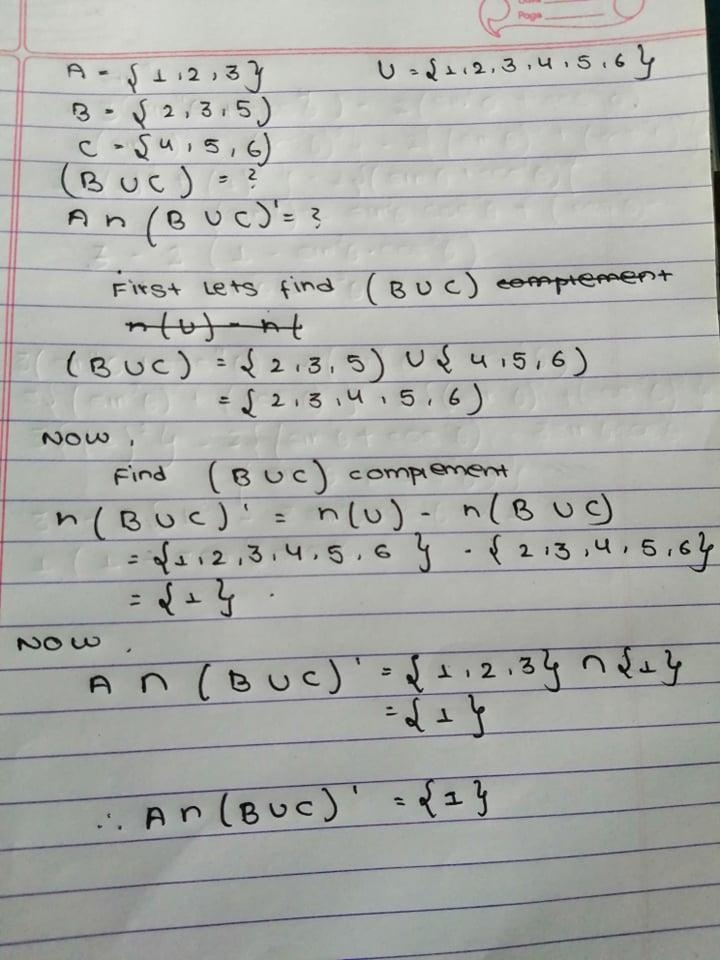 Page
A = { 1, 2, 3 } U = { 1, 2, 3, 4, 5, 6 }
B = { 2, 3, 5 )
C = { 4, 5, 6 )
(B ∪ C) = ?
A ∩ (B ∪ C)' = ?
First Lets find (B ∪ C) complement
n(U) - n(
(B ∪ C) = { 2, 3, 5 ) ∪ { 4, 5, 6 )
= { 2, 3, 4, 5, 6 )
NOW,
Find (B ∪ C) complement
n (B ∪ C)' = n(U) - n(B ∪ C)
= { 1, 2, 3, 4, 5, 6 } - { 2, 3, 4, 5, 6 }
= { 1 } .
NOW,
A ∩ (B ∪ C)' = { 1, 2, 3 } ∩ { 1 }
= { 1 }
∴ A ∩ (B ∪ C)' = { 1 }